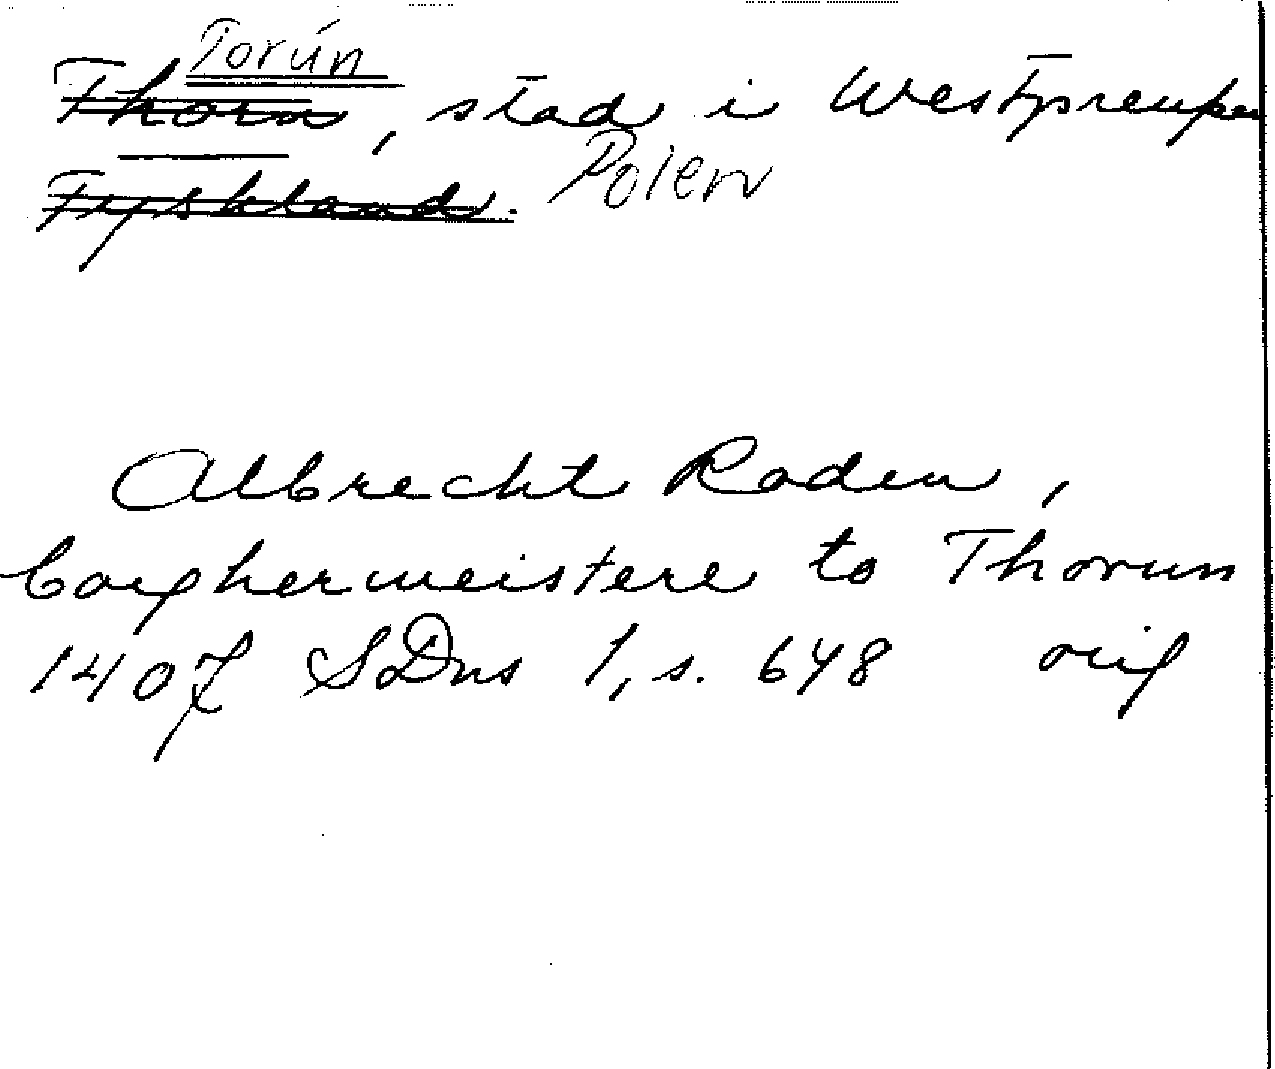 Torún
Thorn, stad i Westpreußen
Tyskland. Polen
Albrecht Roden,
borghermeistere to Thorun
1407 SDns 1, s. 648 orig